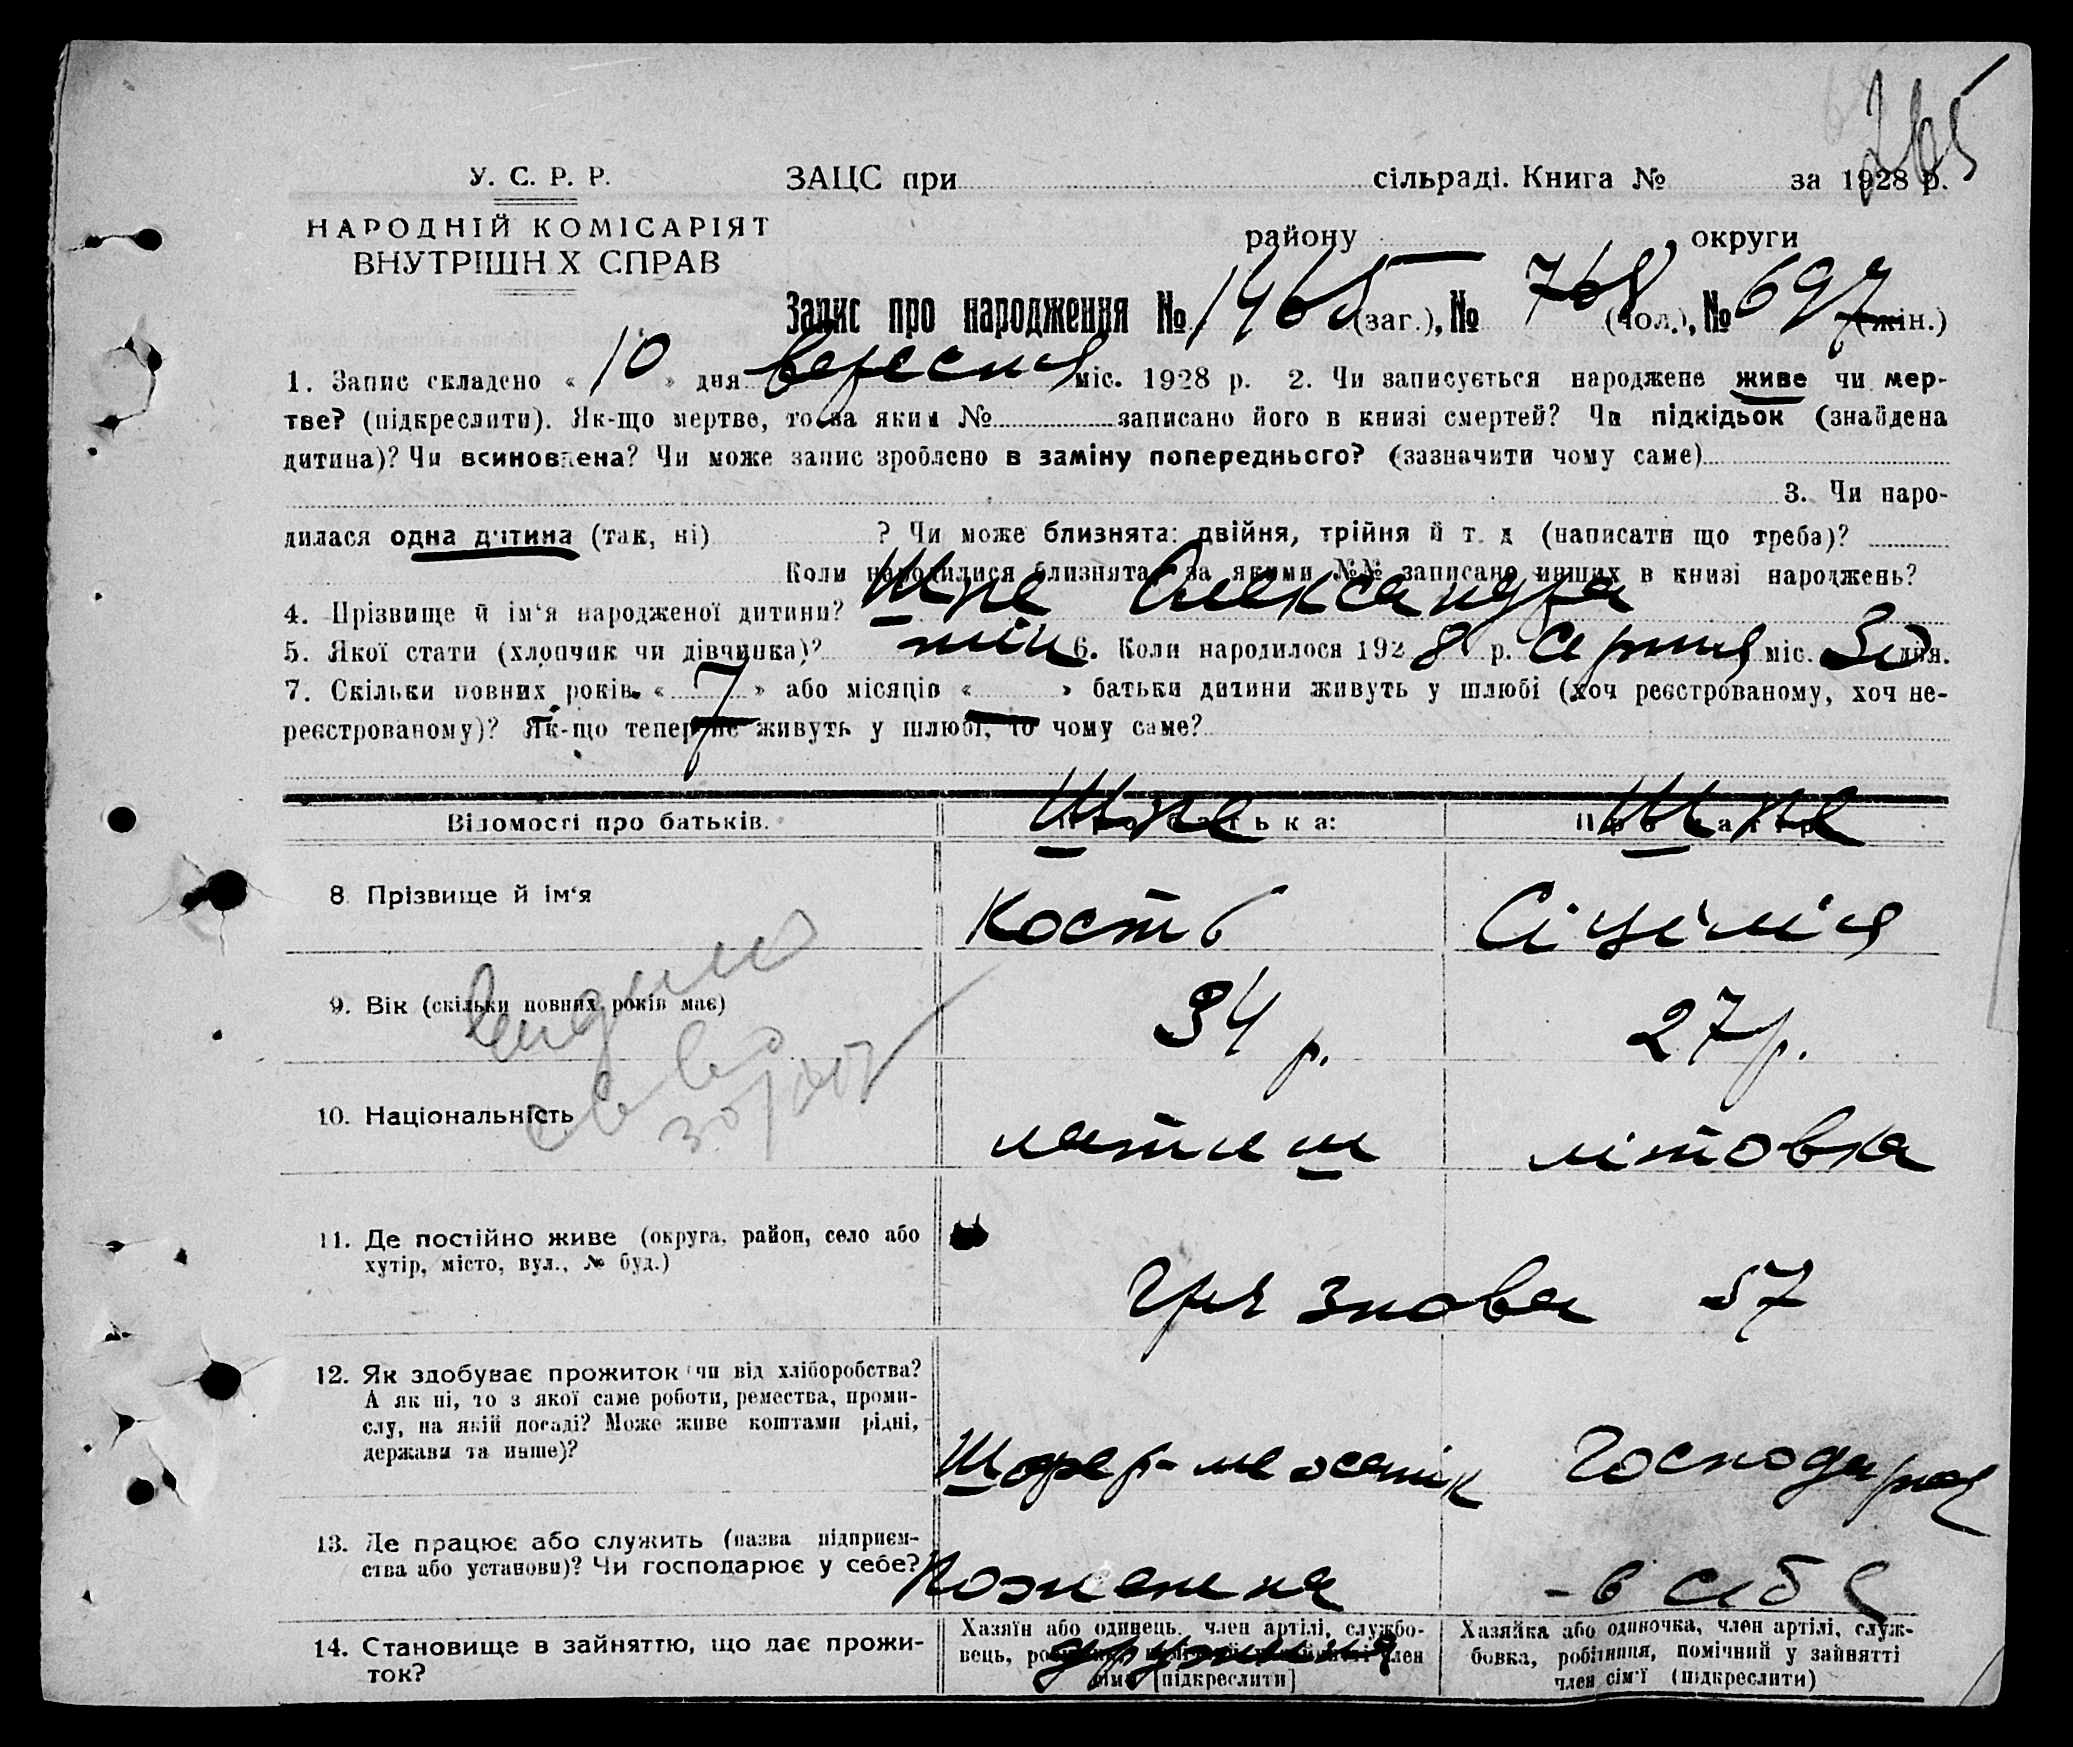 765
У. С. Р. Р.
НАРОДНІЙ КОМІСАРІЯТ
ВНУТРІШН Х СПРАВ
ЗАЦС при сільраді. Книга № за 1928 р.
району округи
Запис про народження № 1465 (заг.), № 768 (чол.), № 697 (жін.)
1. Запис складено « 10 » дня вересня міс. 1928 р. 2. Чи записується народжене живе чи мер-
тве? (підкреслити). Як-що мертве, то за яким № записано його в книзі смертей? Чи підкідьок (знайдена
дитина)? Чи всиновлена? Чи може запис зроблено в заміну попереднього? (зазначити чому саме)
3. Чи наро-
дилася одна дитина (так, ні) ? Чи може близнята: двійня, трійня й т. д (написати що треба)?
Коли народилися близнята, за якими №№ записано инших в книзі народжень?
4. Прізвище й ім‘я народженої дитини? Шпе Олександра
5. Якої стати (хлопчик чи дівчинка)? жін 6. Коли народилося 1928 р. серпня міс. 30 дня.
7. Скільки повних років « 7 » або місяців « — » батьки дитини живуть у шлюбі (хоч реєстрованому, хоч не-
реєстрованому)? Як-що тепер не живуть у шлюбі, то чому саме?
Відомості про батьків. Про батька: Про матір
8. Прізвище й ім‘я Шпе Кость Шпе Сіцілія
9. Вік (скільки повних років має) 34 р. 27 р.
10. Національність латиш літовка
11. Де постійно живе (округа, район, село або
хутір, місто, вул., № буд.)
Грязнова 57
12. Як здобуває прожиток чи від хліборобства?
А як ні, то з якої саме роботи, ремества, проми-
слу, на якій посаді? Може живе коштами рідні,
держави та инше)?
Шофер- Господарка
13. Де працює або служить (назва підприєм-
ства або установи)? Чи господарює у себе?
Пожежна - в себе
дружина
14. Становище в зайняттю, що дає прожи-
ток?
Хазяїн або одинець, член артілі, службо-
вець, член
[підкреслити]
Хазяйка або одиночка, член артілі, служ-
бовка, робітниця, помічний у зайнятті
член сім‘ї (підкреслити)